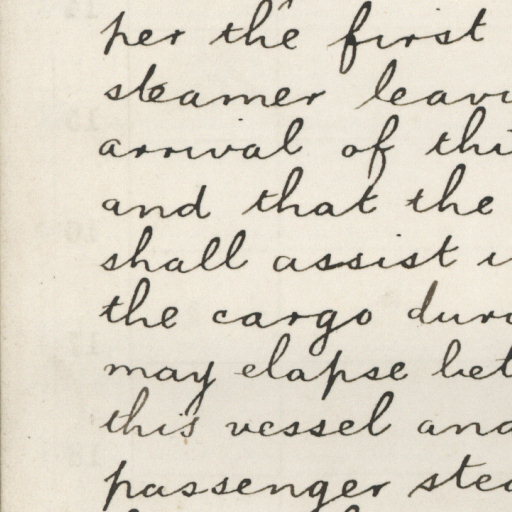 per the first
steamer leavi
arrival of thi
and that the
shall assist i
the cargo duri
may elapse bet
this vessel and
passenger stea